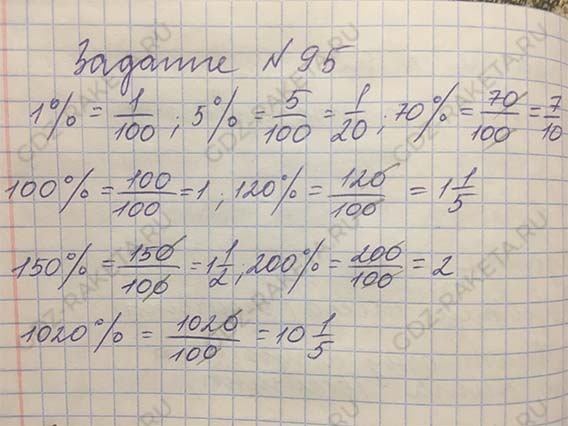 Задание №95
1% = 1/100 ; 5% = 5/100 = 1/20 ; 70% = 70/100 = 7/10
100% = 100/100 = 1 ; 120% = 120/100 = 1 1/5
150% = 150/100 = 1 1/2 ; 200% = 200/100 = 2
1020% = 1020/100 = 10 1/5
GDZ-RAKETA.RU